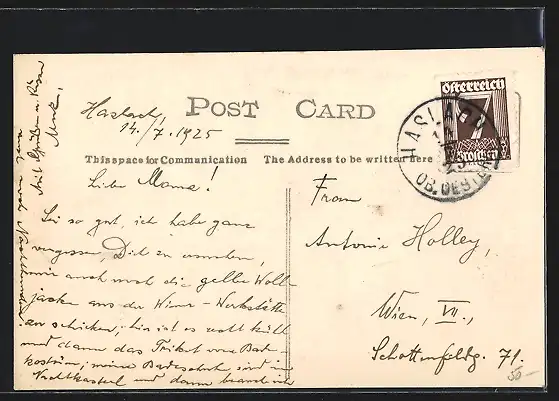 Haslach,
14./7. 1925
POST CARD
This space for Communication
The Address to be written here
Liebe Mama!
Sei so gut, ich habe ganz
vergessen, Dich zu ersuchen,
mir auch noch die gelbe Woll-
jacke aus der Wiener-Werkstätte
zu schicken, hier ist es recht kühl
und dann das Trikot vom Bade-
kostüm; meine Badeschuhe sind im
Nachtkasterl und dann brauch ich
Mit Grüßen u. Küssen
Frau
Antonie Holley,
Wien, VII.,
Schottenfeldg. 71.
Österreich
7
Groschen
HASLACH
OB. OEST.
50-